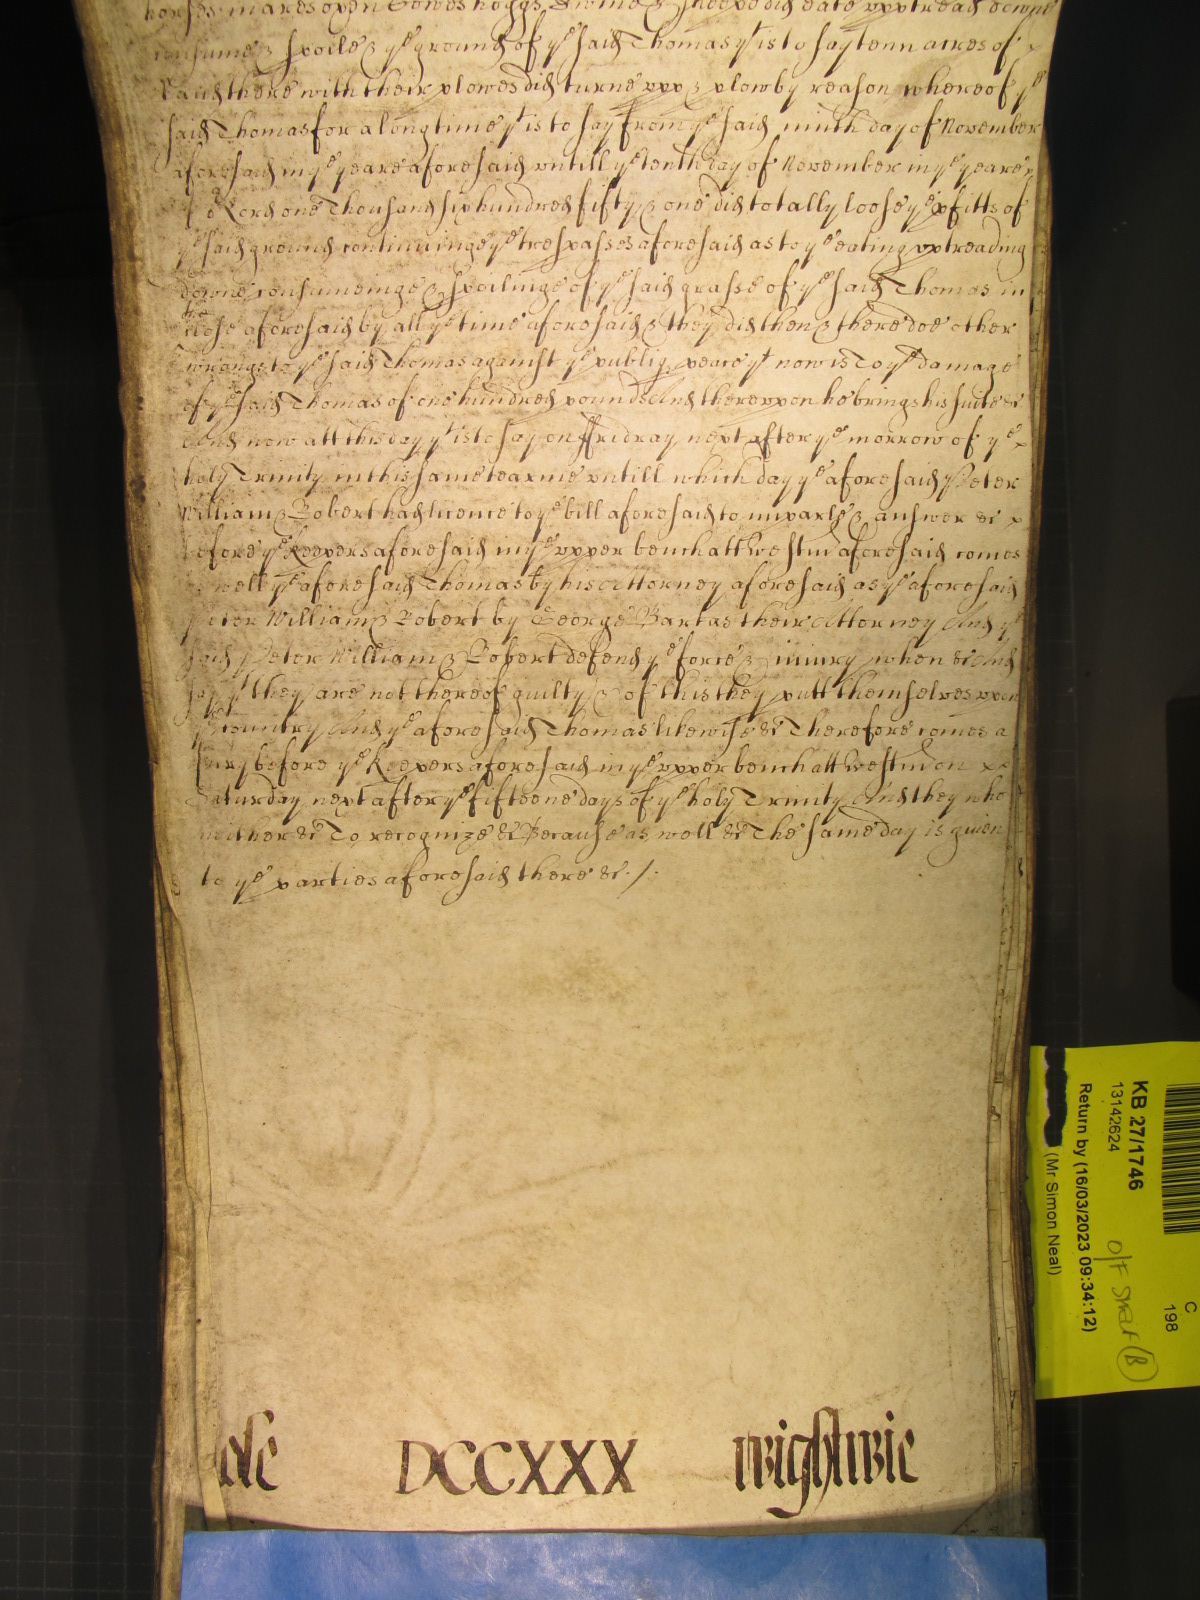 horses mares oxen Cowes hoggs, Swine & sheepe did eate upp tread downe
consume & Spoile & ye ground of ye said Thomas yt is to say tenn acres of x
Land there with their plowes did turne upp & plow by reason whereof ye
said Thomas for a long time yt is to say from ye said ninth day of November
aforesaid in ye yeare aforesaid untill ye tenth day of November in ye yeare
of or Lord one Thousand six hundred fifty & one did totally loose ye pfitts of
ye said ground continuinge ye trespasses aforesaid as to ye eating upp treading
downe consumeinge & spoilinge of ye said grasse of ye said Thomas in
ye close aforesaid by all ye time aforesaid & they did then & there doe other
wrongs to ye said Thomas against ye publiq peace yt now is To ye damage
of ye said Thomas of one hundred pounds And thereupon he brings his suite &c
And now att this day yt is to say on ffriday next after ye morrow of ye x
holy Trinity in this same tearme untill which day ye aforesaid Peter
William & Robert had licence to ye bill aforesaid to imparle & answer &c x
before ye Keepers aforesaid in ye upper bench att Westm aforesaid comes
as well ye aforesaid Thomas by his Attorney aforesaid as ye aforesaid
Peter William & Robert by George Bartas their Attorney And ye
said Peter William & Robert defend ye force & iniury when &c And
say yt they are not thereof guilty & of this they putt themselves upon
ye Country And ye aforesaid Thomas likewise &c Therefore comes a
Jury before ye Keepers aforesaid in ye upper bench att Westm on xx
Saturday next after ye fifteene days of ye holy Trinity And they who
neither &c To recognize &c Because as well &c The same day is given
to ye parties aforesaid there &c ./.
DCCXXX
wightwie
KB 27/1746
13142624
Return by (16/03/2023 09:34:12)
(Mr Simon Neal)
C
198
O/F
(B)